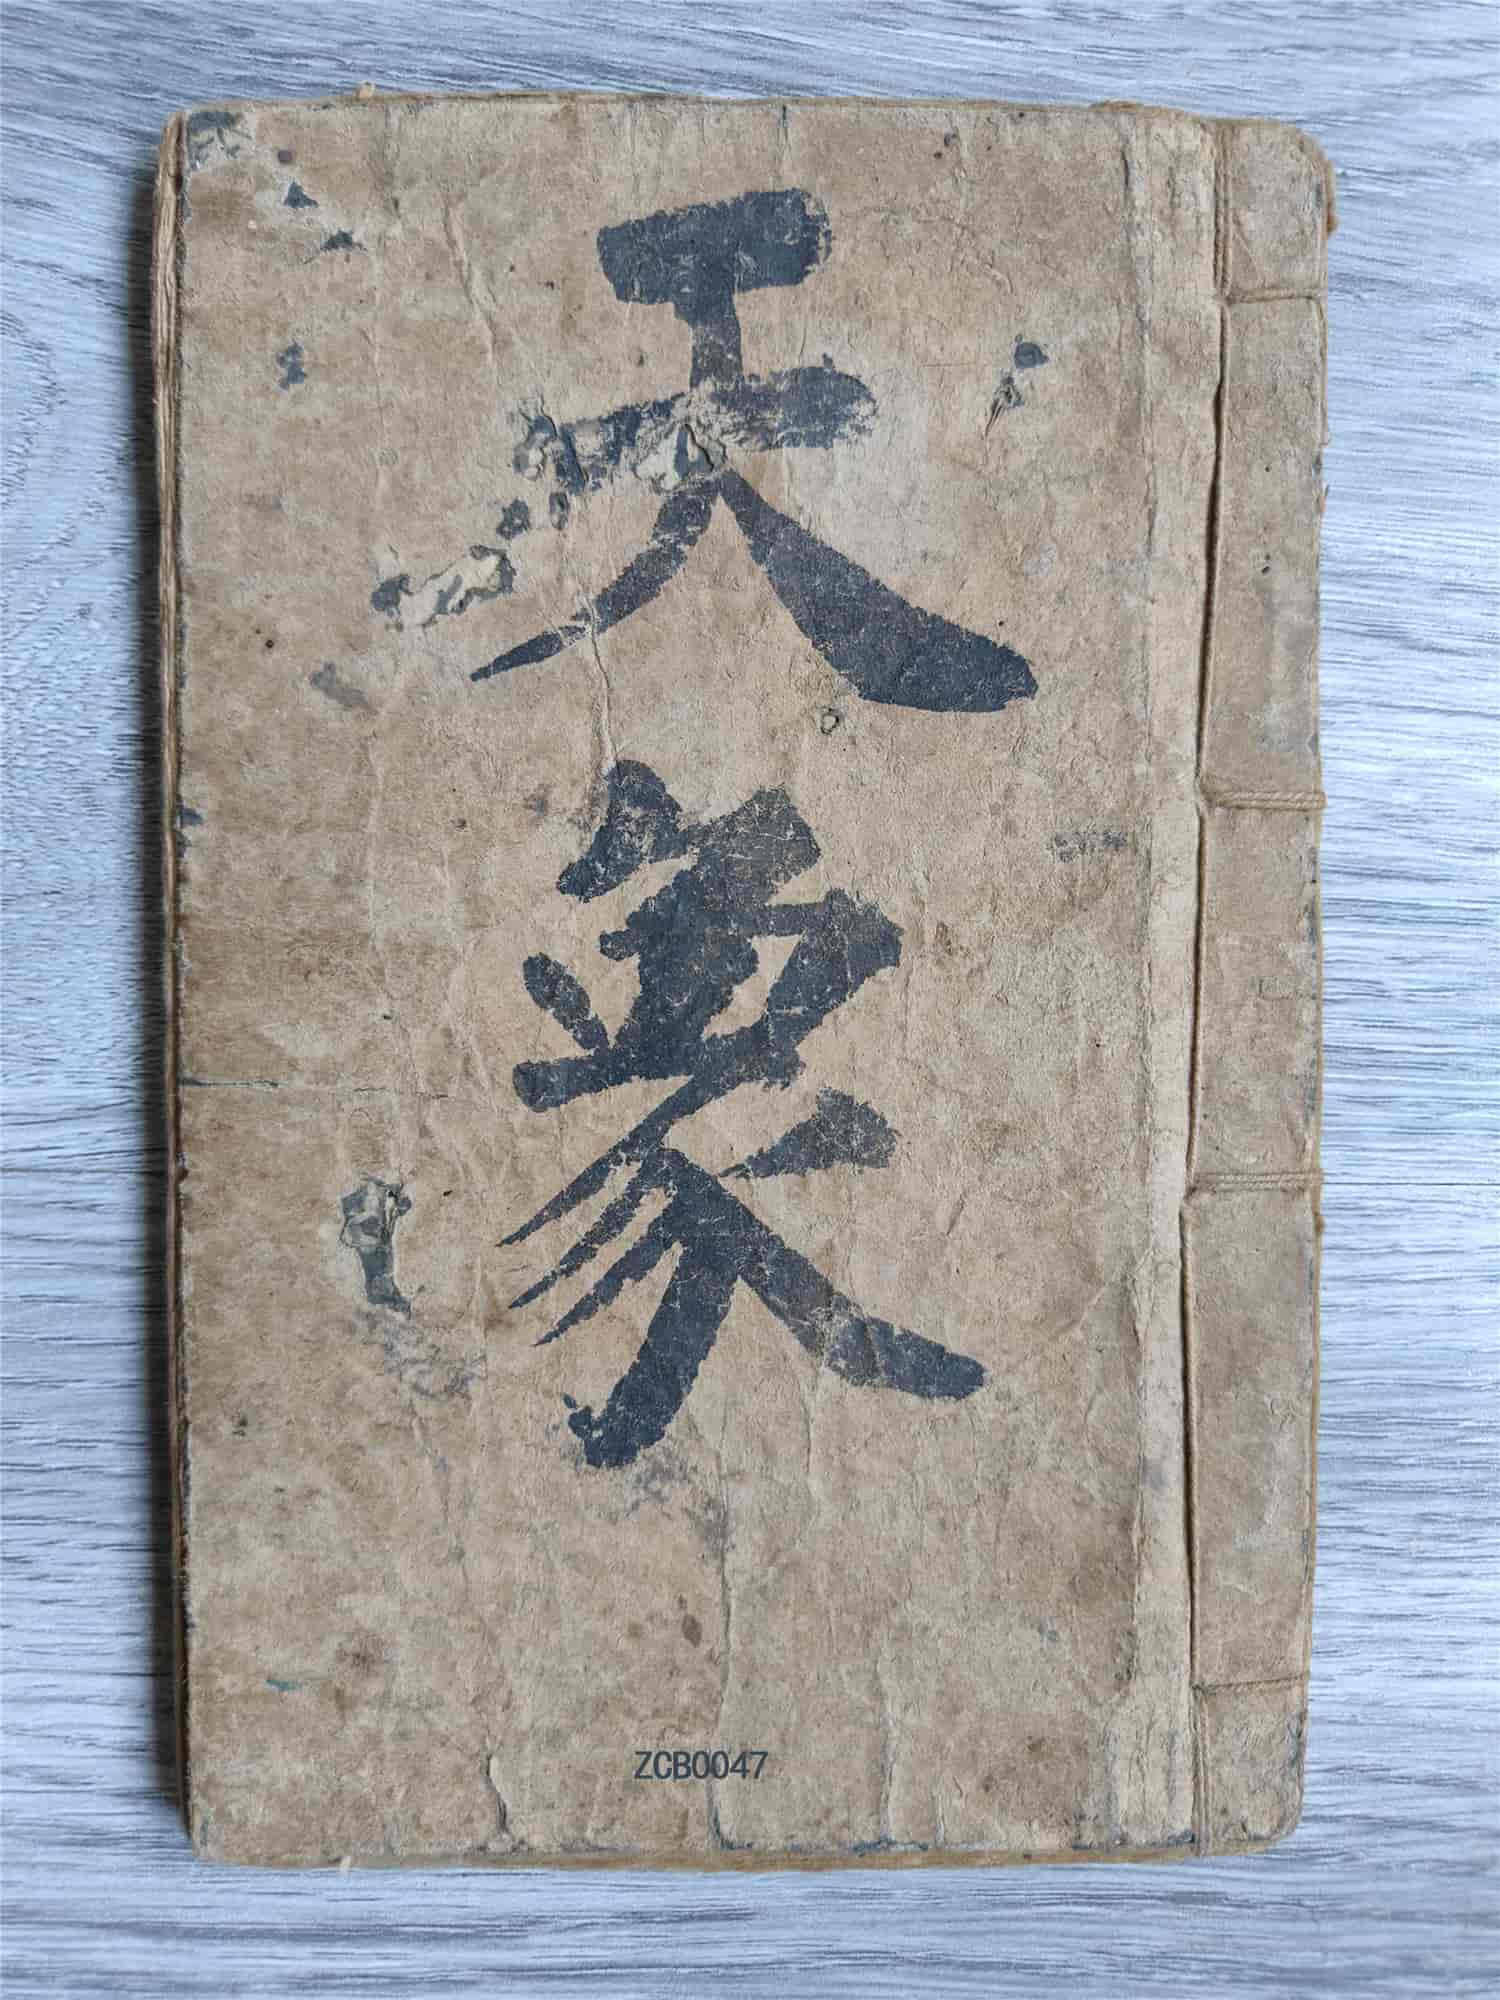 天象
ZCB0047